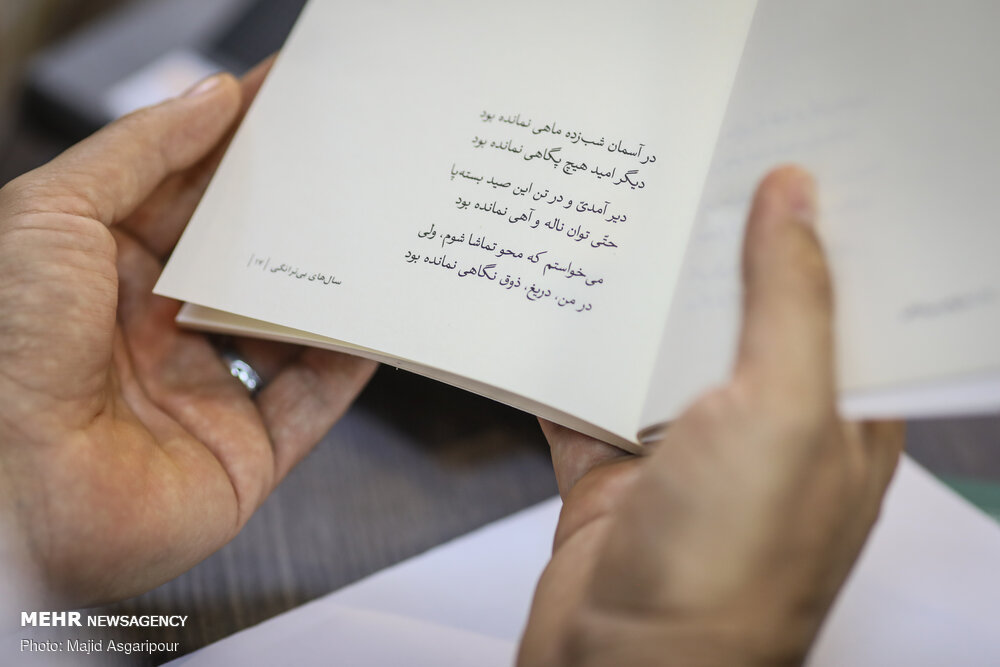 در آسمان شب‌زده ماهی نمانده بود
دیگر امید هیچ پگاهی نمانده بود
دیر آمدیّ و در تن این صید بسته‌پا
حتّی توان ناله و آهی نمانده بود
می‌خواستم که محو تماشا شوم، ولی
در من، دریغ، ذوق نگاهی نمانده بود
سال‌های بی‌ترانگی
MEHR NEWSAGENCY
Photo: Majid Asgaripour